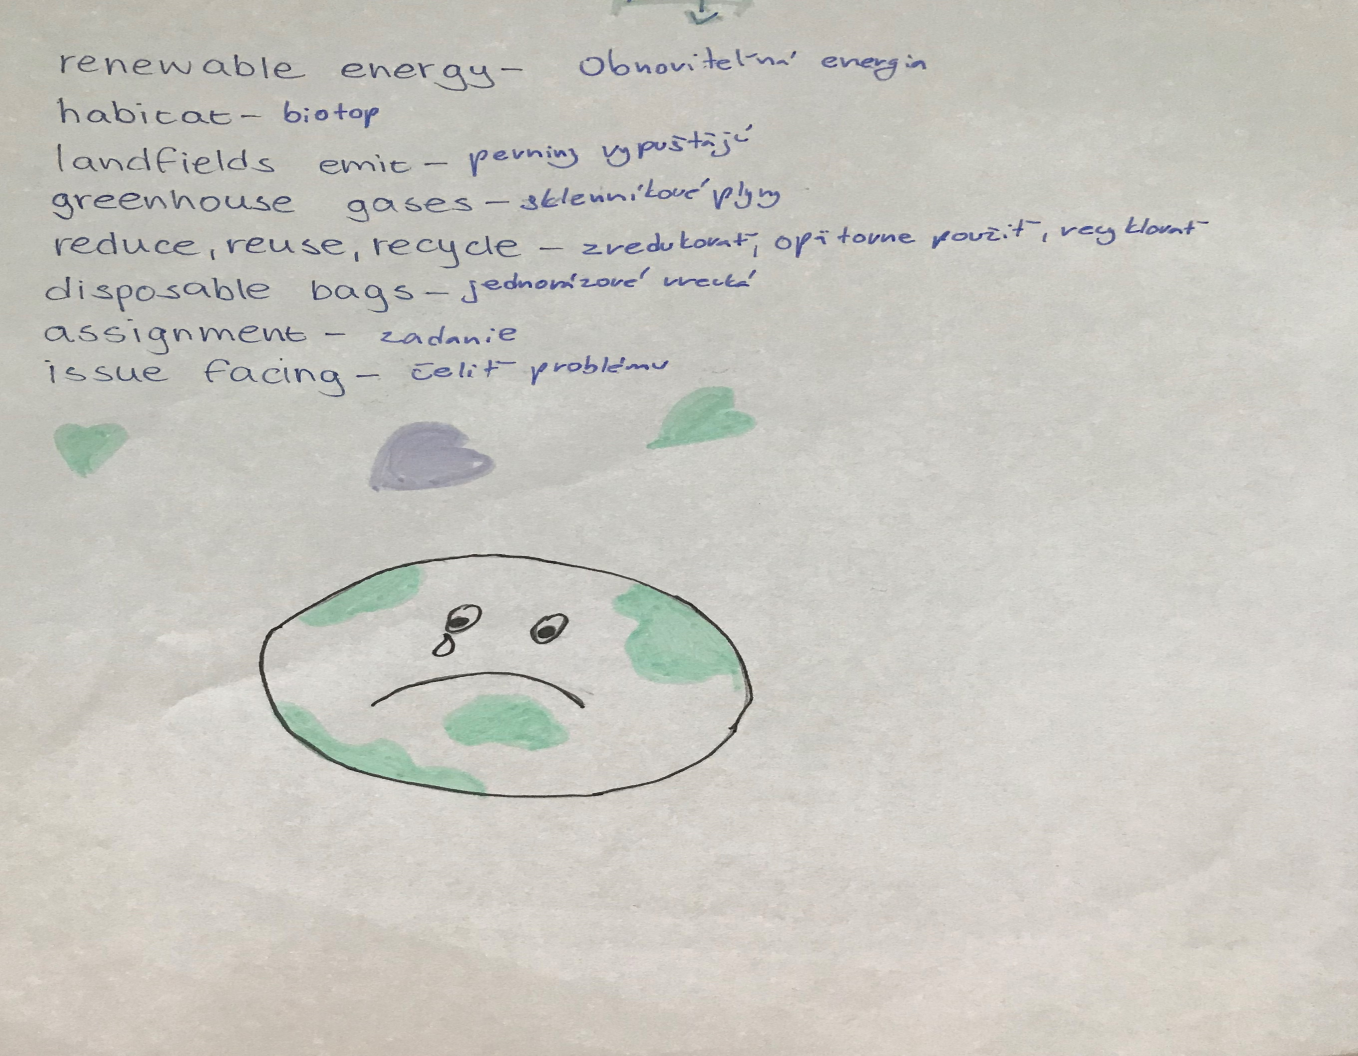 renewable energy - Obnoviteľná energia
habitat - biotop
landfields emit - pevniny vypúšťajú
greenhouse gases - sklenníkové plyny
reduce, reuse, recycle - zredukovať, opätovne použiť, recyklovať
disposable bags - jednorázové vrecká
assignment - zadanie
issue facing - čeliť problému